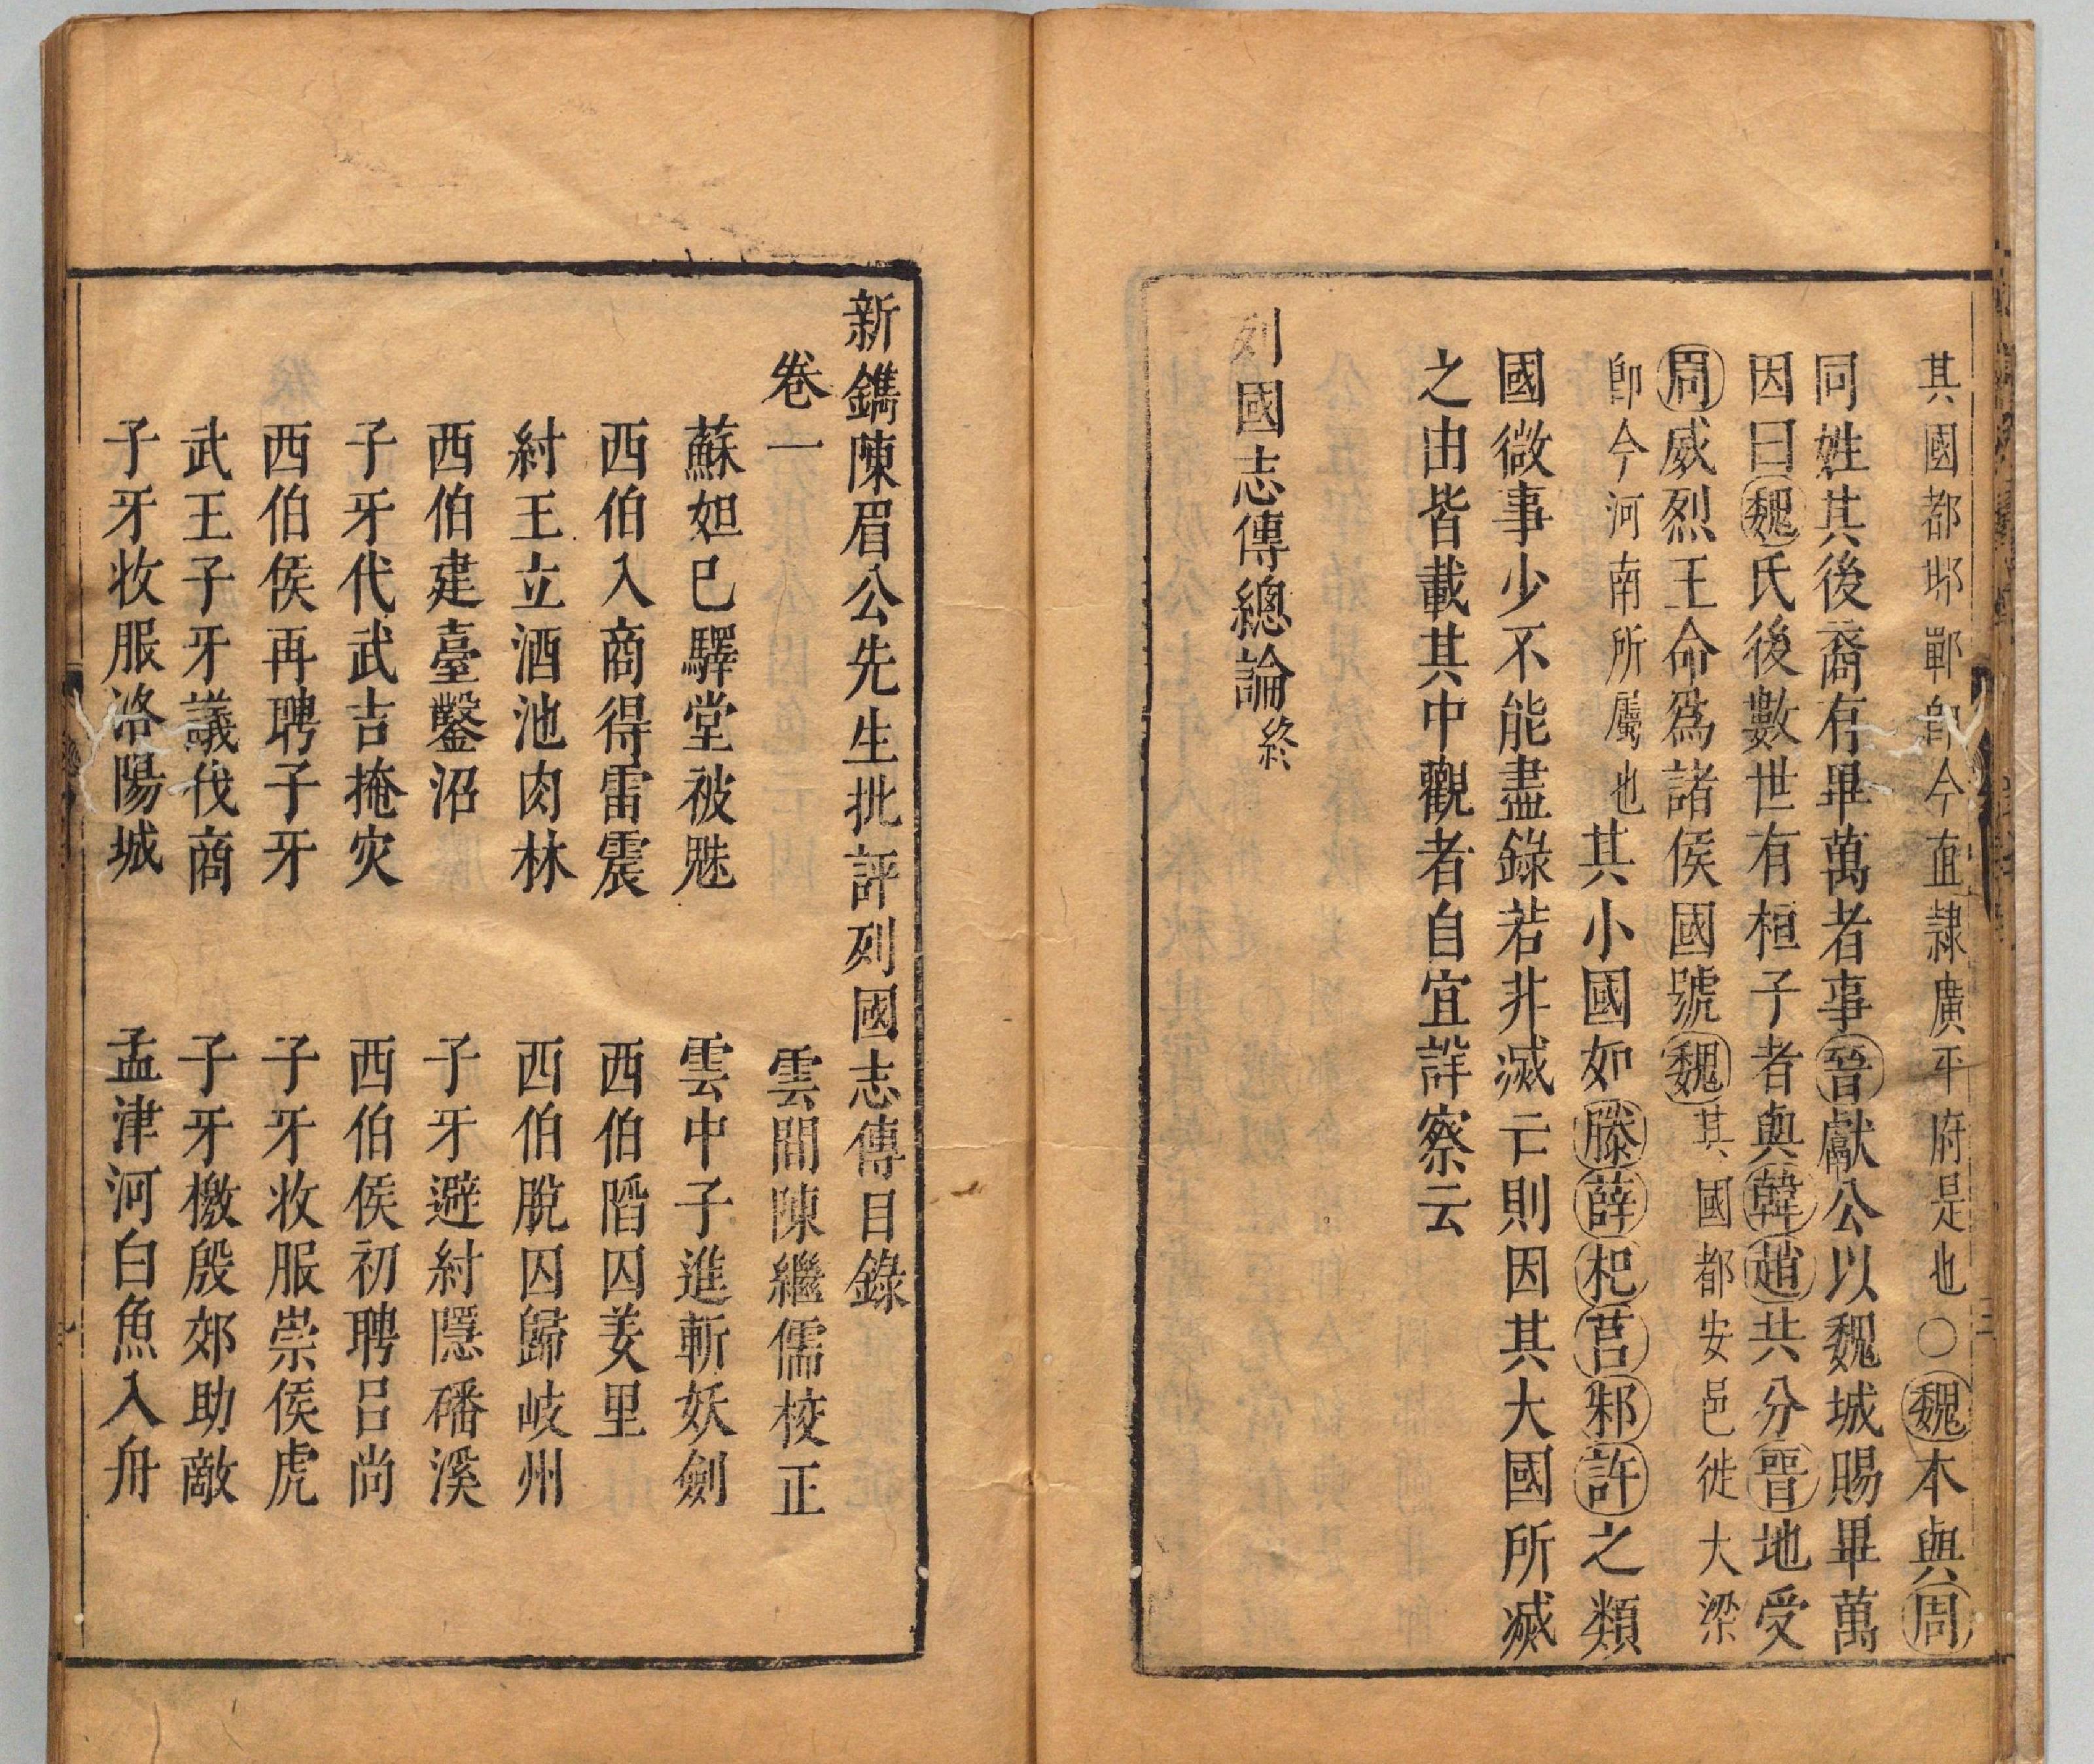 其國都邯鄲卽今直隷廣平府是也○魏本與周
同姓其後裔有畢萬者事晉獻公以魏城賜畢萬
因曰魏氏後數世有桓子者與韓趙共分晉地受
周威烈王命爲諸侯國號魏其國都安邑徙大梁
卽今河南所屬也其小國如滕薛杞莒邾許之類
國微事少不能盡錄若非滅亡則因其大國所滅
之由皆載其中觀者自宜詳察云
列國志傳總論終
新鐫陳眉公先生批評列國志傳目錄
卷一 雲間陳繼儒校正
蘇妲己驛堂被魅 雲中子進斬妖劍
西伯入商得雷震 西伯陷囚羑里
紂王立酒池肉林 西伯脫囚歸岐州
西伯建臺鑿沼 子牙避紂隱磻溪
子牙代武吉掩灾 西伯侯初聘呂尚
西伯侯再聘子牙 子牙收服崇侯虎
武王子牙議伐商 子牙檄殷郊助敵
子牙收服洛陽城 孟津河白魚入舟